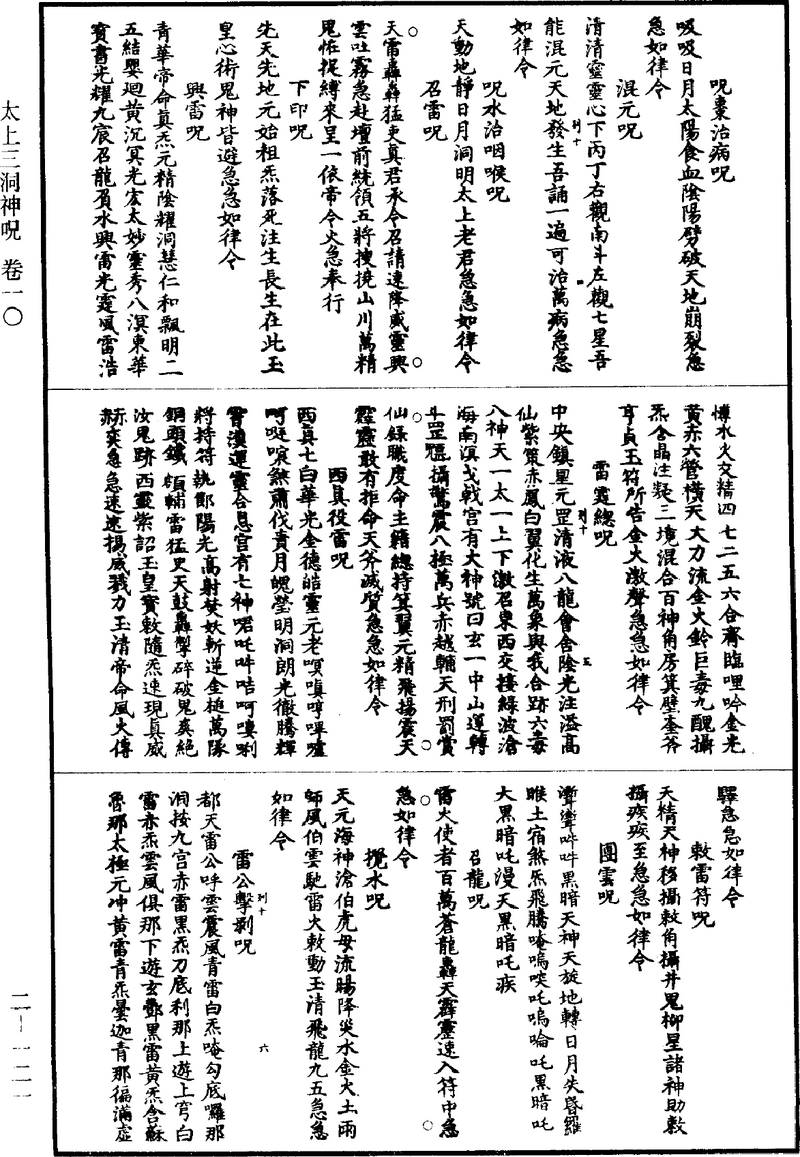 太上三洞神呪 卷一〇
二—一二一
呪棗治病呪
吸吸日月太陽食血陰陽劈破天地崩裂急
急如律令
混元呪
清清靈靈心下丙丁右觀南斗左觀七星吾
能混元天地發生吾誦一遍可治萬病急急
如律令
呪水治咽喉呪
天動地靜日月洞明太上老君急急如律令
召雷呪
天雷轟轟猛吏真君承令召請速降威靈興
雲吐霧急赴壇前統領五將搜撓山川萬精
鬼怪捉縛來呈一依帝令火急奉行
下印呪
先天先地元始祖炁落死注生長生在此玉
皇心術鬼神皆避急急如律令
興雷呪
青華帝命真炁元精陰耀洞慧仁和飄明二
五結嬰迴黃沉冥光宏太妙靈秀八溟東華
寶書光耀九宸召龍負水興雷光霆風雷浩
博水火交精四七二五六合齊臨哩吟金光
黃赤六管橫天大力流金火鈴巨毒九醜攝
炁含晶注凝三境混合百神角房箕壁奎昴
亨貞玉符所告金火激聲急急如律令
雷霆總呪
中央鎮星元罡清液八龍會舍陰光注溢高
仙紫策赤鳳白翼化生萬象與我合跡六毒
八神天一太一上下激召東西交接綠波滄
海南溟戈戟宮有大神號曰玄一中山運轉
斗罡 攝驚震八極萬兵赤越輔天刑罰賞
仙錄職度命主籍總持箕翼元精飛揚震天
霹靂敢有拒命天斧滅質急急如律令
西真役雷呪
西真七白華光金德皓靈元老 嗔哼嗶嚧
呵 唳煞肅伐賁月魄瑩明洞朗光徹騰輝
霄漢運靈合息宮有七神喏吒吽咭呵嘍唎
將持符執節陽光高射焚妖斬逆金槌萬隊
銅頭鐵額輔雷猛吏天鼓轟掣碎破鬼爽絕
汝鬼跡西靈紫詔玉皇寶敕隨炁速現真威
赫奕急急速速揚威戮力玉清帝命風火傳
驛急急如律令
敕雷符呪
天精天神移攝敕角攝井鬼柳星諸神助敕
攝疾疾至急急如律令
團雲呪
吽吽黑暗天神天旋地轉日月失昏羅
睺土宿煞炁飛騰唵嗚 吒嗚唵吒黑暗吒
大黑暗吒漫天黑暗吒疾
召龍呪
雷火使者百萬蒼龍轟天霹靂速入符中急
急如律令
攪水呪
天元海神滄伯虎母流腸降災水金火土雨
師風伯雲馳雷火敕動玉清飛龍九五急急
如律令
雷公擊剝呪
都天雷公呼雲震風青雷白炁唵勾底囉那
洞按九宮赤雷黑炁刀底利那上遊上穹白
雷赤炁雲風俱那下遊玄酆黑雷黃炁含蘇
魯那太極元冲黃雷青炁曇迦青那徧滿虛
列十
五
列十
列十
六